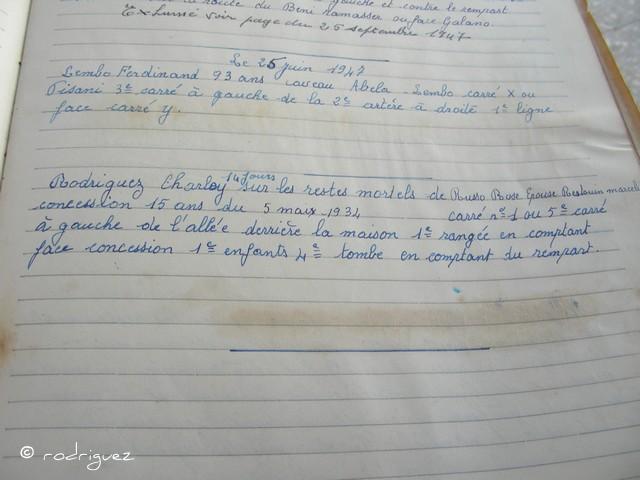 route du Beni ramasser ou face Galano.
Ex Lussé voir page du 25 septembre 1947
Le 25 juin 1947
Lembo Ferdinand 93 ans caveau Abela - Lembo carré X ou
Pisani 3e carré à gauche de la 2e artère à droite 1e ligne
face carré y.
Rodriguez Charley 14 jours sur les restes mortels de Russo Rose Epouse Restouin marcel
concession 15 ans du 5 mars 1934 carré n° 1 ou 5e carré
à gauche de l'allée derrière la maison 1e rangée en comptant
face concession 1e enfants 4e tombe en comptant du rempart.
© rodriguez